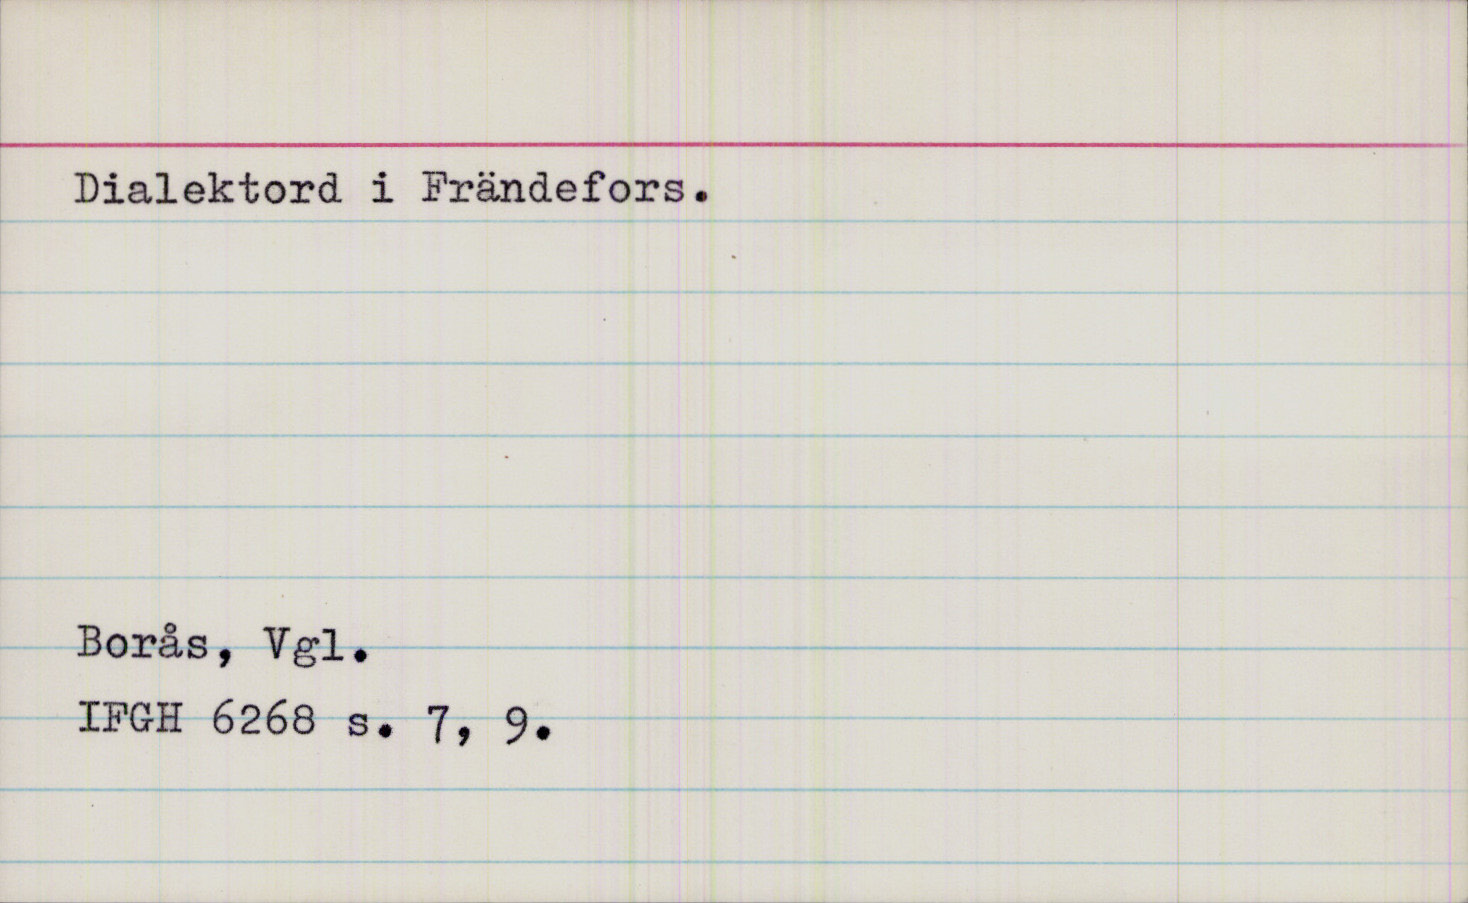 Dialektord i Frändefors.
Borås, Vgl.
IFGH 6268 s. 7, 9.